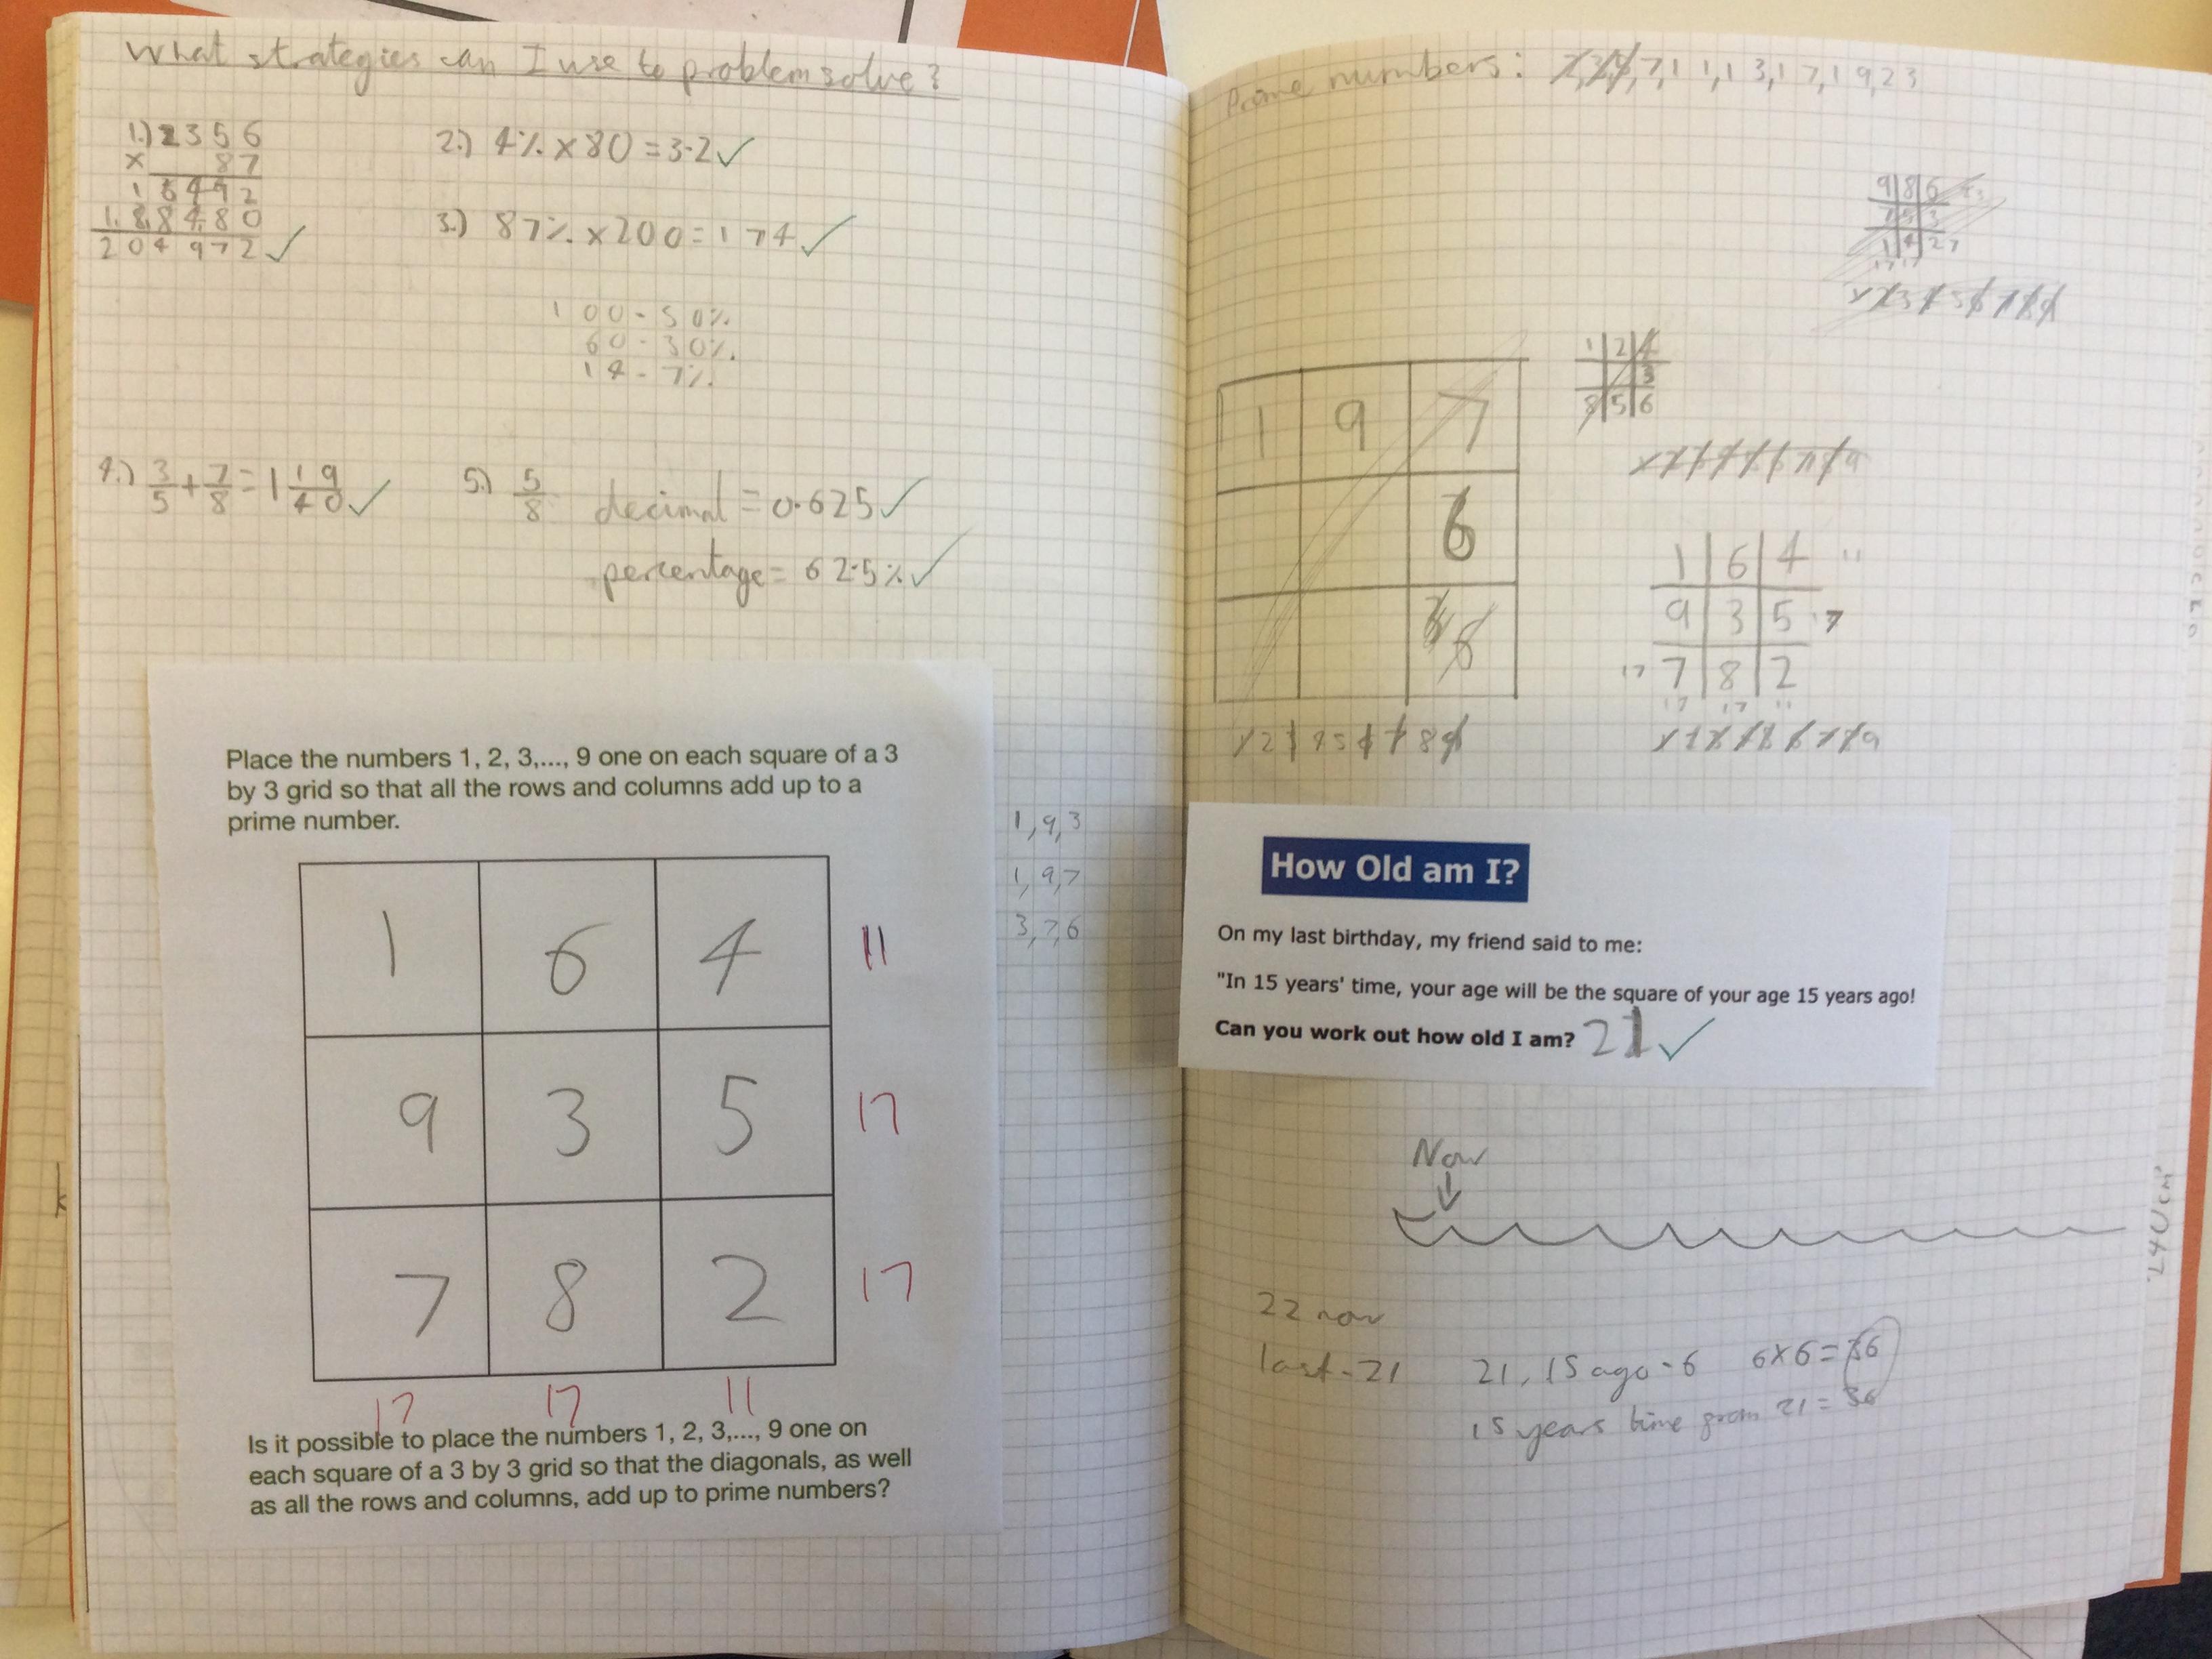 What strategies can I use to problem solve?
1.) 2356
x 87
16492
188480
204972 ✓
2.) 4% x 80 = 3.2 ✓
3.) 87% x 200 = 174 ✓
100 - 50%
60 - 30%
14 - 7%
4.) 3/5 + 7/8 = 1 19/40 ✓
5.) 5/8 decimal = 0.625 ✓
percentage = 62.5% ✓
Place the numbers 1, 2, 3,..., 9 one on each square of a 3
by 3 grid so that all the rows and columns add up to a
prime number.
1 6 4 11
9 3 5 17
7 8 2 17
17 17 11
Is it possible to place the numbers 1, 2, 3,..., 9 one on
each square of a 3 by 3 grid so that the diagonals, as well
as all the rows and columns, add up to prime numbers?
1, 9, 3
1, 9, 7
3, 7, 6
Prime numbers: 2, 3, 5, 7, 11, 13, 17, 19, 23
9 8 6
1 4 2 7
1 2 4
3
8 5 6
1 9 7
6
1 2 3 4 5 6 7 8 9
1 6 4 11
9 3 5 17
17 7 8 2
17 17 11
1 2 3 4 5 6 7 8 9
How Old am I?
On my last birthday, my friend said to me:
"In 15 years' time, your age will be the square of your age 15 years ago!
Can you work out how old I am? 21 ✓
Now
22 now
last - 21
21, 15 ago - 6 6x6=36
15 years time from 21 = 36